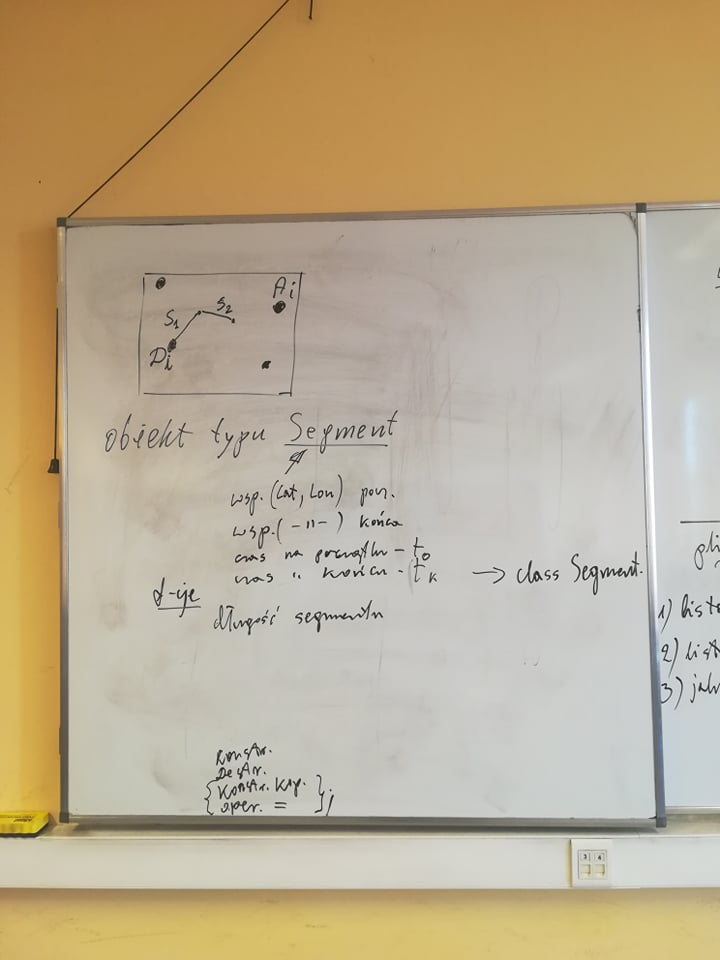 Ai
S1 S2
Di
obiekt typu Segment
wsp. (Lat, Lon) pocz.
wsp. ( -"- ) końca
czas na początku - t0
czas " końcu - tk → class Segment.
f-cje
długość segmentu
Konstr.
Destr.
{ Konstr. kop.
oper. = };
1) list
2) list
3)
3 4